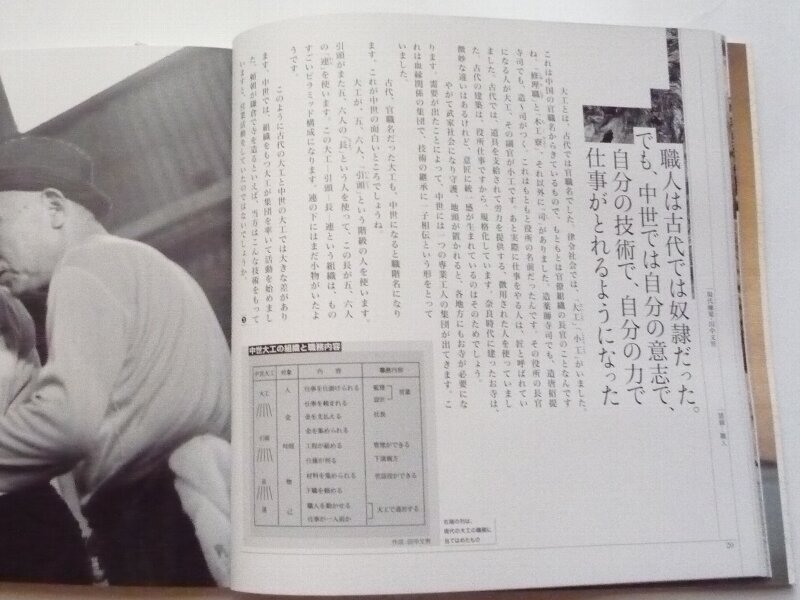 職人は古代では奴隷だった。
でも、中世では自分の意志で、
自分の技術で、自分の力で
仕事がとれるようになった
談義・職人
現代棟梁・田中文男
大工とは、古代では官職名でした。律令社会では、「大工」、「小工」がいました。
これは中国の官職名からきているもので、もともとは官僚組織の長官のことなんです
ね。「修理職」と「木工寮」、それ以外に「司」がありました。造薬師寺司でも、造唐招提
寺司でも、造・司がつく。これはもともと役所の名前だったんです。その役所の長官
になる人が大工、その副官が小工です。あと実際に仕事をやる人は、匠と呼ばれてい
ました。古代では、道具を支給されて労力を提供する、徴用された人を使っていまし
た。古代の建築は、役所仕事ですから、規格化しています。奈良時代に建ったお寺は、
微妙な違いはあるけれど、意匠に統一感が生まれているのはそのためでしょう。
やがて武家社会になり守護、地頭が置かれると、各地方にもお寺が必要にな
ります。需要が出たことによって、中世には一つの専業工人の集団が出てきます。こ
れは血縁関係の集団で、技術の継承に一子相伝という形をとって
いました。
古代、官職名だった大工も、中世になると職階名になり
ます。これが中世の面白いところでしょうね。
大工が、五、六人、「引頭」という階級の人を使います。
引頭がまた五、六人の「長」という人を使って、この長が五、六人
の「連」を使います。この大工―引頭―長―連という組織は、もの
すごいピラミッド構成になります。連の下にはまだ小物がいたよ
うです。
このように古代の大工と中世の大工では大きな差があり
ます。中世では、組織をもつ大工が集団を率いて活動を始めまし
た。頼朝が鎌倉で寺を造るといえば、当方はこんな技術をもって
いますと、営業活動をしていたのではないでしょうか。
中世大工の組織と職務内容
中世大工 対象 内容 職務内容
大工 人 仕事を仕掛けられる 監理 営業
仕事を頼まれる 設計
金 金を支払える 社長
金を集められる
引頭 時間 工程が組める 管理ができる
仕様が判る 下請親方
長 物 材料を集められる 世話役ができる
下職を頼める
連 己 職人を動かせる 大工で通用する
仕事が一人前か
作成・田中文男
右端の列は、
現代の大工の職種に
当てはめたもの
29